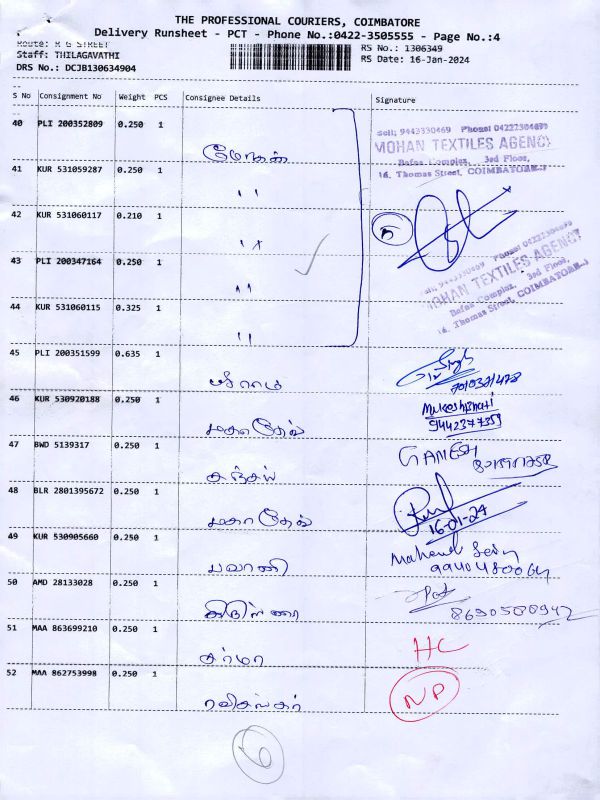 THE PROFESSIONAL COURIERS, COIMBATORE
Delivery Runsheet - PCT - Phone No.:0422-3505555 - Page No.:4
Route: R G STREET
Staff: THILAGAVATHI
DRS No.: DCJB130634904
RS No.: 1306349
RS Date: 16-Jan-2024
S No Consignment No Weight PCS Consignee Details Signature
40 PLI 200352809 0.250 1 மோகன்
MOHAN TEXTILES AGENCY
Bafna Complex, 3rd Floor,
16, Thomas Street, COIMBATORE-1
41 KUR 531059287 0.250 1 "
42 KUR 531060117 0.210 1 "
5
43 PLI 200347164 0.250 1 "
MOHAN TEXTILES AGENCY
Bafna Complex, 3rd Floor,
16, Thomas Street, COIMBATORE-1
44 KUR 531060115 0.325 1 "
45 PLI 200351599 0.635 1 ஸ்ரீராம்
46 KUR 530920188 0.250 1 மகாதேவ்
Mukesh Bhati
9442377359
47 BWD 5139317 0.250 1 சஞ்சய்
GANESH
48 BLR 2801395672 0.250 1 மகாதேவ்
16-01-24
49 KUR 530905660 0.250 1 பவானி
50 AMD 28133028 0.250 1
8690580942
51 MAA 863699210 0.250 1 சர்மா HC
52 MAA 862753998 0.250 1 ரவிசங்கர் NP
6